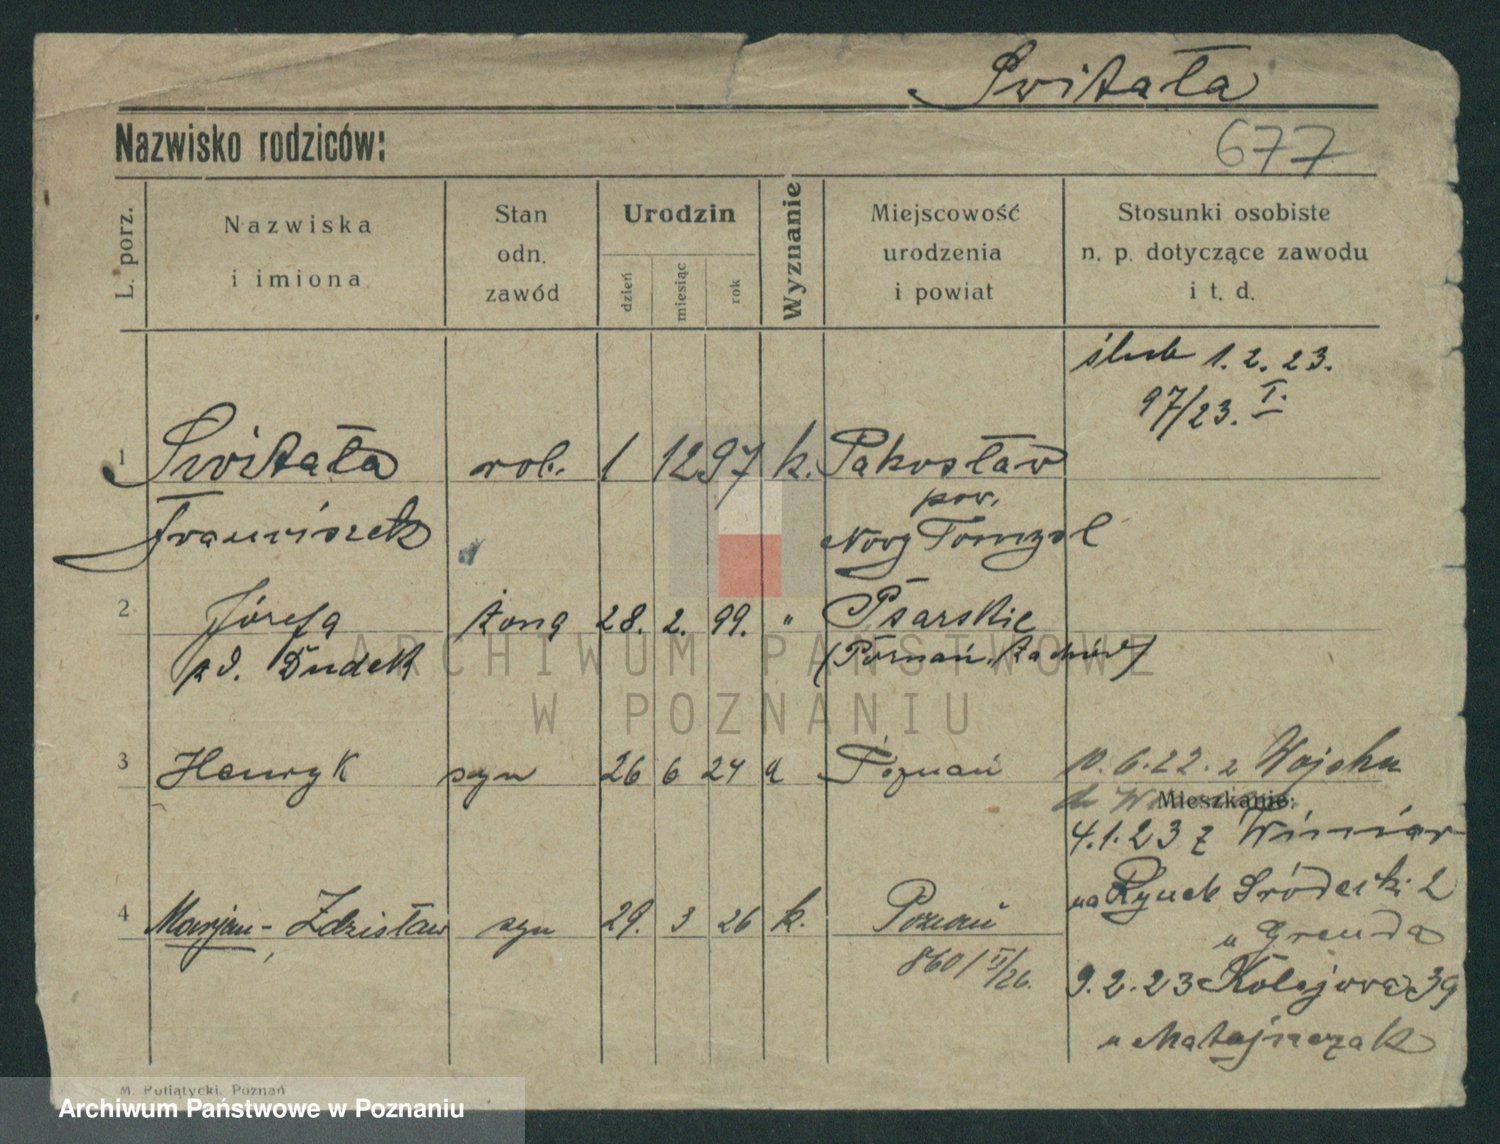 Switała
Nazwisko rodziców:
677
L. porz.
Nazwiska
i imiona
Stan
odn.
zawód
Urodzin
dzień
miesiąc
rok
Wyznanie
Miejscowość
urodzenia
i powiat
Stosunki osobiste
n. p. dotyczące zawodu
i t. d.
ślub 1. 2. 23.
97/23. I.
1 Switała rob. 1 12 97 k. Pakosław
pow.
Franciszek Nowy Tomyśl
2 Józefa żona 28. 2. 99. " Psarskie
zd. Dudek (Poznań. Zachód)
3 Henryk syn 26 6 24 Poznań 10. 6. 22. z
do
Mieszkanie:
4. 1. 23 z Winiar
na Rynek Śródecki 2
u Grenda
4 Marjan - Zdzisław syn 29. 3 26 k. Poznań
860/II/26.
9. 2. 23 Kolejowa 39
u Matajczak
M. Putiatycki, Poznań
ARCHIWUM PAŃSTWOWE
W POZNANIU
Archiwum Państwowe w Poznaniu